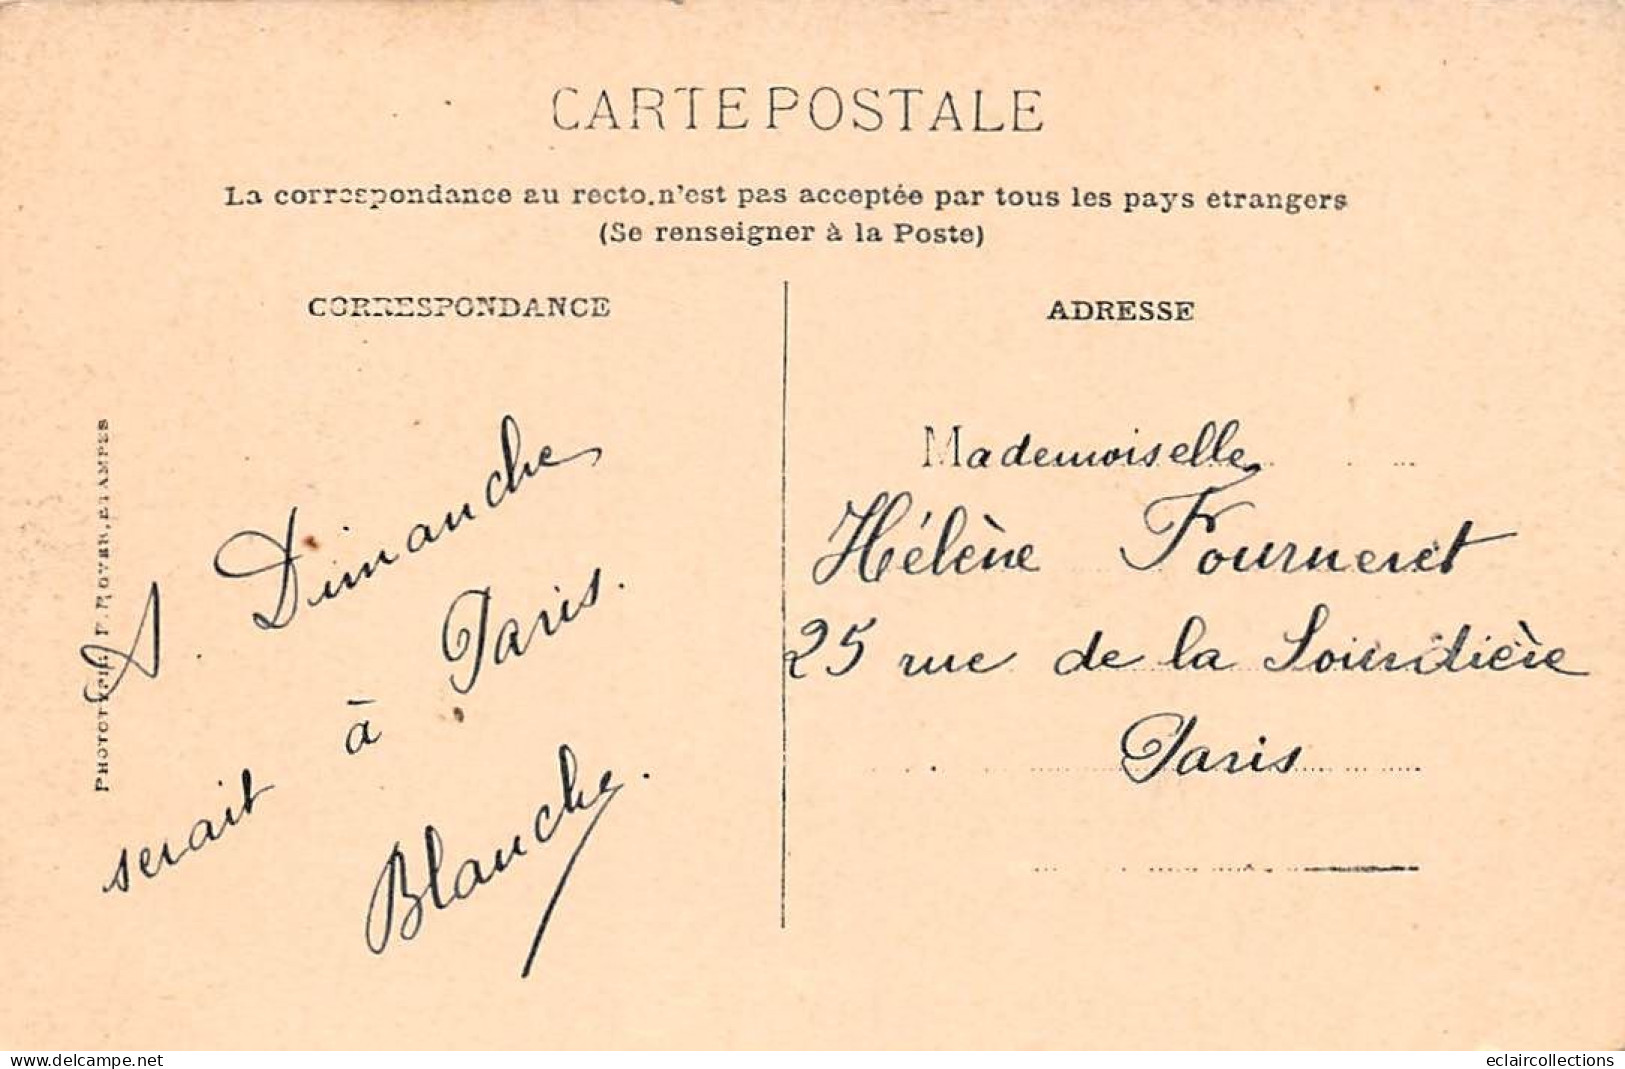 CARTE POSTALE
La correspondance au recto.n'est pas acceptée par tous les pays etrangers
(Se renseigner à la Poste)
CORRESPONDANCE
S. Dimanche
serait à Paris.
Blanche.
PHOTOTYPIE E. ROYER, ETAMPES
ADRESSE
Mademoiselle
Hélène Fourneret
25 rue de la
Paris
delcampe.net
eclaircollections